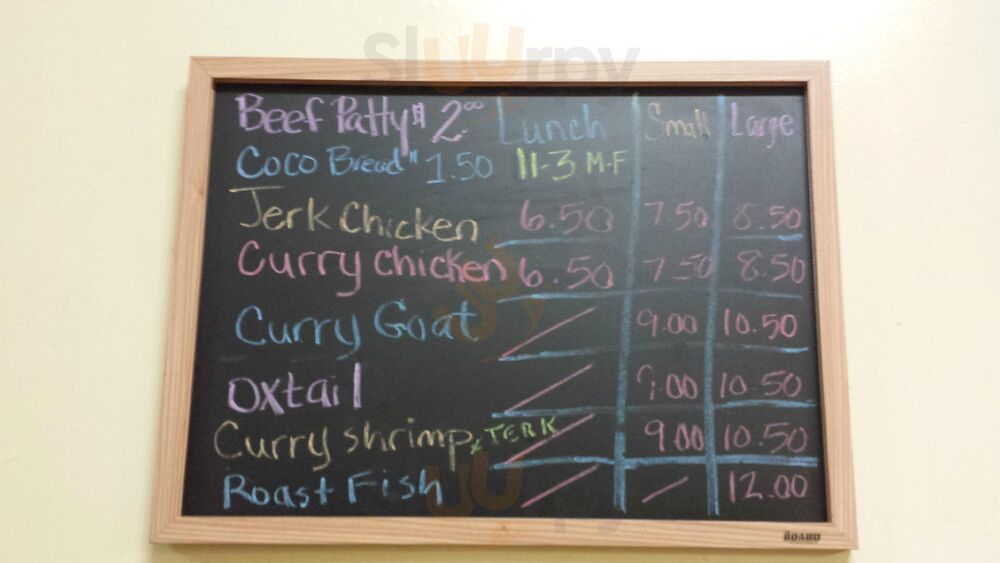 Sluurpy
Beef Patty $ 2.00 Lunch Small Large
Coco Bread " 1.50 11-3 M-F
Jerk Chicken 6.50 7.50 8.50
Curry Chicken 6.50 7.50 8.50
Curry Goat 9.00 10.50
Oxtail 9.00 10.50
Curry Shrimp x JERK 9.00 10.50
Roast Fish 12.00
BOARD